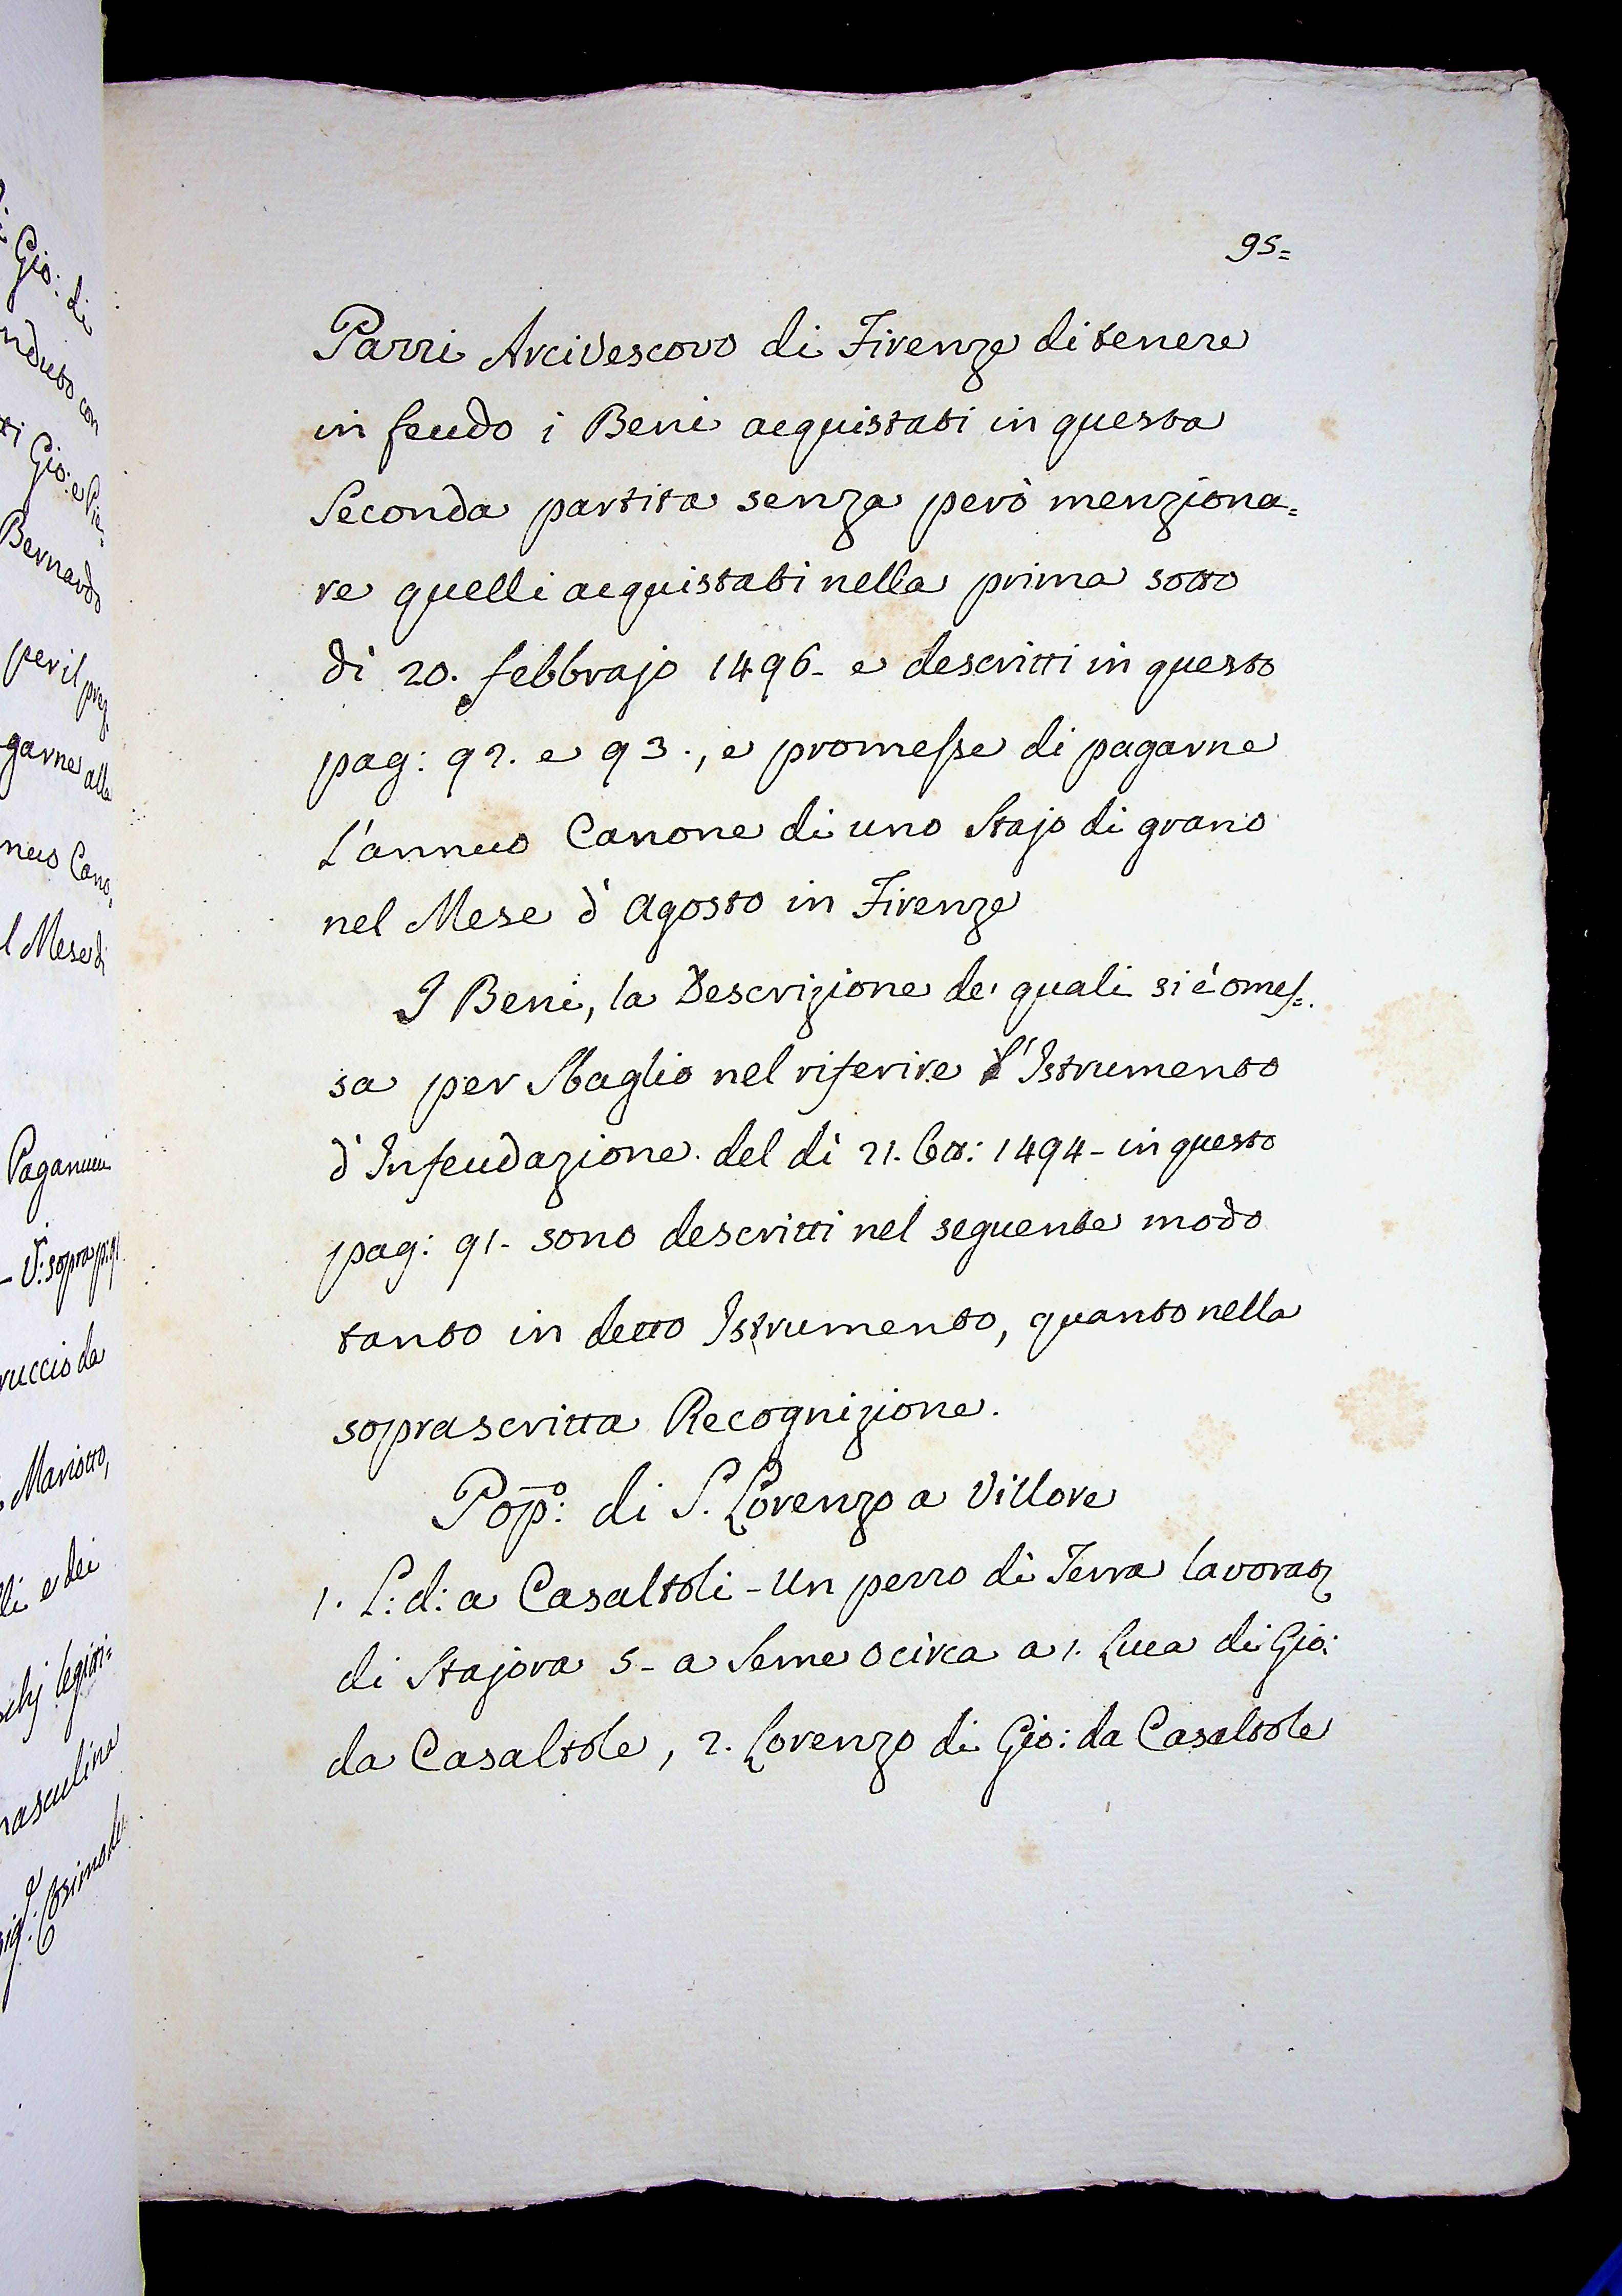 i Gio: di
nduto con
ti Gio: e Pie-
Bernardo
per il prez
garne alla
nuo Cano,
l Mese di
Paganucci
- V: sopra p: 91
ruccio da
Mariotto,
li e dei
schj legitti=
masculina
Sig.e: Cosimo de
95=
Pazzi Arcivescovo di Firenze di tenere
in feudo i Beni acquistati in questa
Seconda partita senza però menziona=
re quelli acquistati nella prima sotto
dì 20. febbrajo 1496- e descritti in questo
pag: 92. e 93., e promesse di pagarne
L'annuo Canone di uno Stajo di grano
nel Mese d'Agosto in Firenze
I Beni, la Descrizione de' quali si è omes=
sa per Sbaglio nel riferire l'Istrumento
d'Infeudazione del dì 21. 6re: 1494- in questo
pag: 91- sono descritti nel seguente modo
tanto in detto Istrumento, quanto nella
soprascritta Recognizione.
Popo: di S. Lorenzo a Villore
1. L: d: a Casaltoli - Un pezzo di Terra lavorat
di Stajora 5- a Seme o circa a 1. Luca di Gio:
da Casaltole, 2. Lorenzo di Gio: da Casaltole